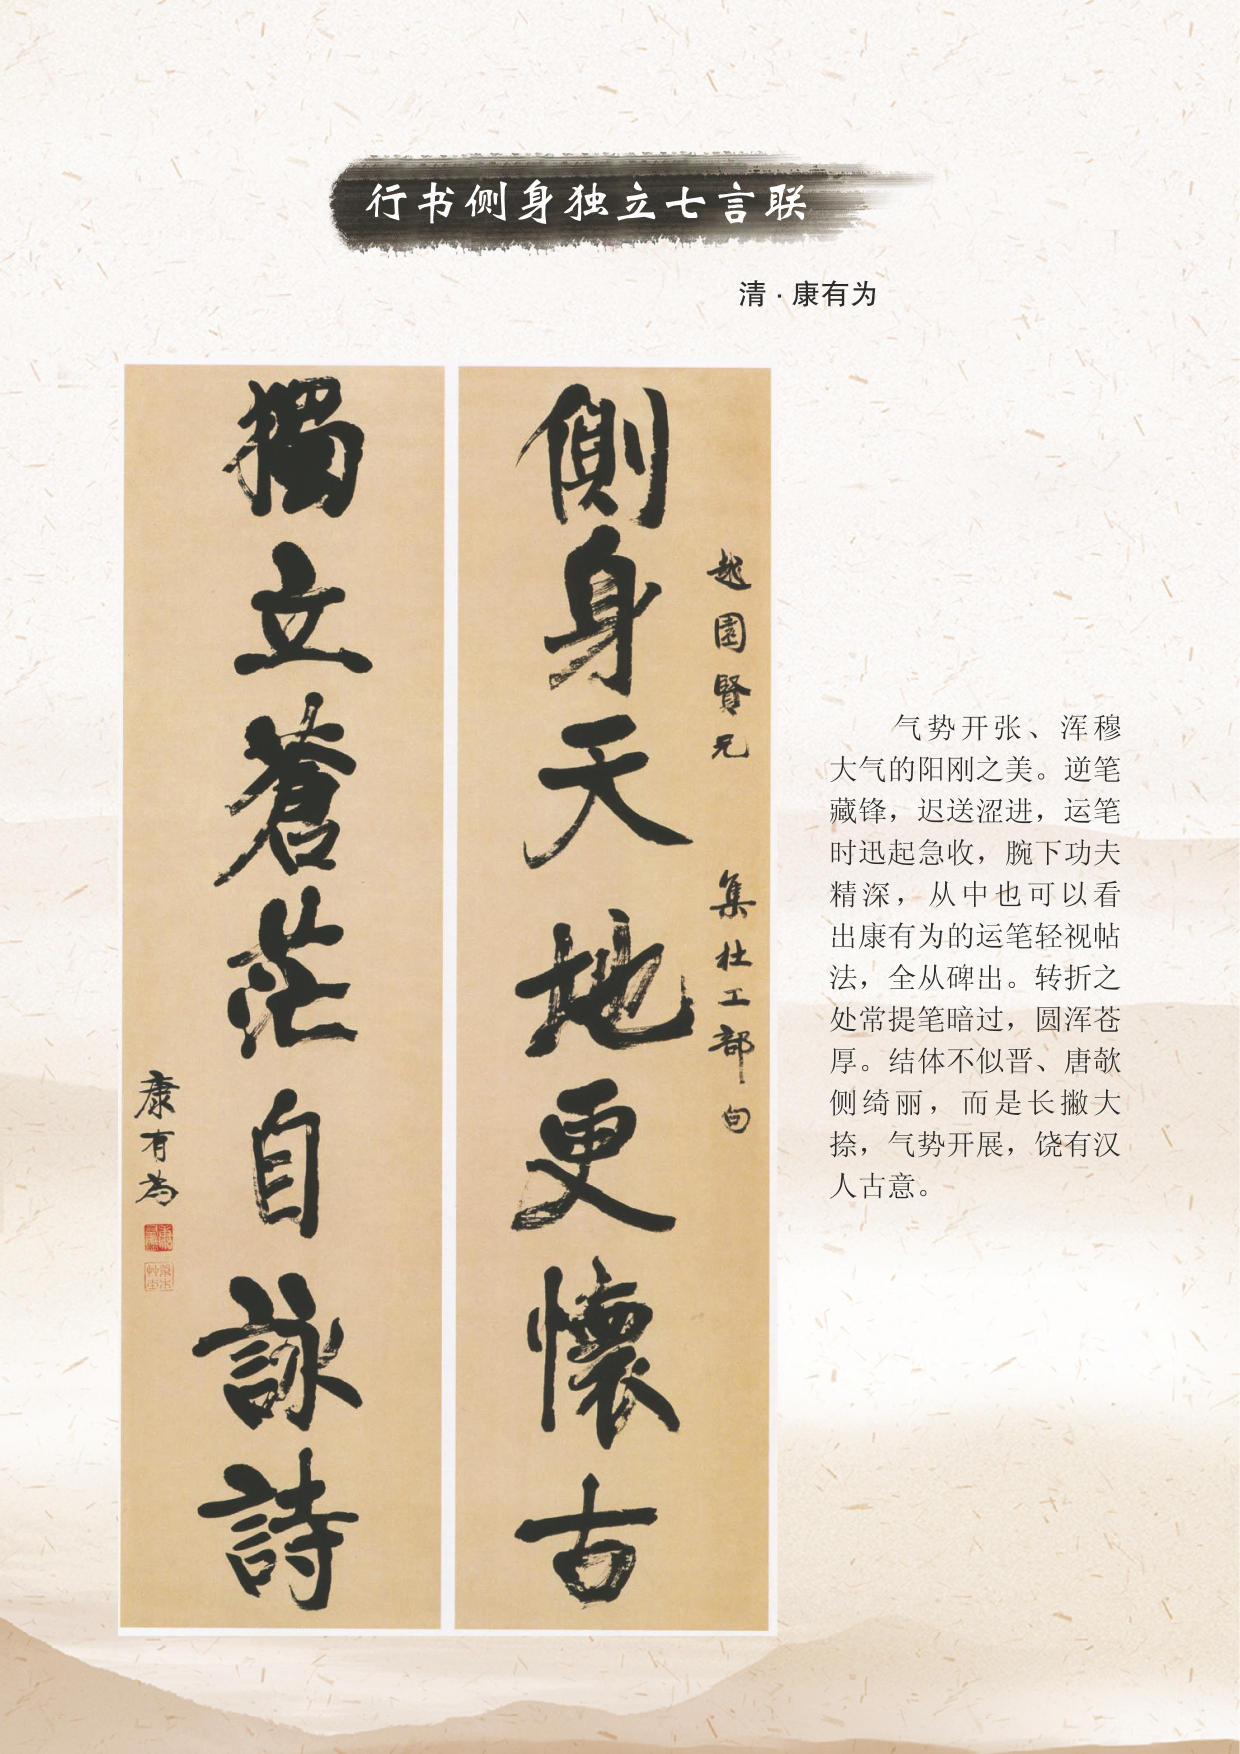 行书侧身独立七言联
清·康有为
側身天地更懷古
越園賢兄 集杜工部句
獨立蒼茫自詠詩
康有為
气势开张、浑穆
大气的阳刚之美。逆笔
藏锋，迟送涩进，运笔
时迅起急收，腕下功夫
精深，从中也可以看
出康有为的运笔轻视帖
法，全从碑出。转折之
处常提笔暗过，圆浑苍
厚。结体不似晋、唐欹
侧绮丽，而是长撇大
捺，气势开展，饶有汉
人古意。